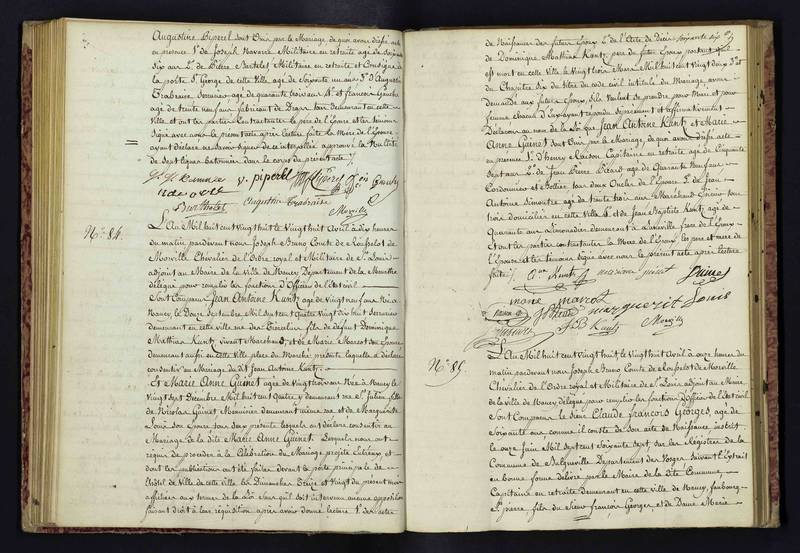 Augustine Piperel sont Unis par le Mariage, de quoi avons dressé acte
en présence 1° de Joseph Navarre Militaire en retraite agé de soixante
six ans 2° de Pierre Bertelet Militaire en retraite et Consigne à
la porte St George de cette Ville, agé de soixante un ans 3° d'Augustin
Trabraise Serrurier agé de quarante trois ans 4° et François Gouly
agé de trente neuf ans fabricant de Draps tous demeurant en cette
Ville. et ont les parties Contractantes le père de l'Epouse et les témoins
signé avec nous le présent acte après lecture faite la Mère de l'Epouse
ayant déclaré ne savoir signer de ce interpellée approuvé la Nullité
de sept lignes batonnées dans le corps du présent acte
v. piperel
Berthelet Augustin Trabraise Morville
N°. 84.
L'An Mil huit cent Vingt huit le Vingt huit Avril à dix heures
du matin pardevant nous Joseph Bruno Comte de Rousselot de
Morville Chevalier de l'Ordre royal et Militaire de St Louis
adjoint au Maire de la Ville de Nancy Département de la Meurthe
délégué pour remplir les fonctions d'Officier de l'Etat civil
Sont Comparus Jean Antoine Kuntz agé de vingt neuf ans Né à
Nancy, le Douze Septembre Mil sept cent Quatre Vingt dix huit Serrurier
demeurant en cette ville rue des Tiercelins fils de défunt Dominique
Mathias Kuntz vivant Marchand, et de Marie Marot son Epouse
demeurant aussi en cette Ville place du Marché présente laquelle a déclaré
consentir au Mariage du dit Jean Antoine Kuntz.
Et Marie Anne Guinet agée de Vingt trois ans Née à Nancy le
Vingt sept Décembre Mil huit cent Quatre y demeurant rue St Julien fille
de Nicolas Guinet Menuisier demeurant même rue et de Marguerite
Louis son Epouse tous deux présents lesquels ont déclaré consentir au
Mariage de la dite Marie Anne Guinet. Lesquels nous ont
requis de procéder à la Célébration du Mariage projeté entr'eux et
dont les publications ont été faites devant la porte principale de
l'hôtel de Ville de cette ville les Dimanches Treize et Vingt du présent mois
affichées aux termes de la Loi sans qu'il soit intervenu aucune opposition
faisant droit à leur réquisition après avoir donné lecture 1° des actes
de Naissance des futurs Epoux 2° de l'Acte de Décès
de Dominique Mathias Kuntz père du futur Epoux portant qu'il
est mort en cette Ville le vingt trois Mars Mil huit cent Vingt deux 3° et
du Chapitre six du titre du code civil intitulé du Mariage avons
demandé aux futurs Epoux s'ils veulent se prendre pour Mari et pour
femme chacun d'eux ayant répondu séparément et affirmativement
Déclarons au nom de la Loi que Jean Antoine Kuntz et Marie
Anne Guinet sont Unis par le Mariage, de quoi avons dressé acte
en présence 1° d'Henry Capitaine en retraite agé de Cinquante
sept ans 2° de Jean Pierre Picard agé de Quarante Neuf ans
Cordonnier et Bottier tous deux Oncles de l'Epouse 3° de Jean
Antoine agé de trente huit ans Maréchal tous
trois domiciliés en cette Ville 4° et de Jean Baptiste Kuntz agé de
Quarante ans Limonadier demeurant à Lunéville frère de l'Epoux
et ont les parties contractantes la Mère de l'Epoux les père et mère de
l'Epouse et les témoins signé avec nous le présent acte après lecture
faite
Kuntz marianne guinet Guinet
marie marot marguerit Louis
JB Kuntz Morville
N°. 85.
L'An Mil huit cent Vingt huit le Vingt huit Avril à onze heures du
matin pardevant nous Joseph Bruno Comte de Rousselot de Morville
Chevalier de l'Ordre royal et Militaire de St Louis adjoint au Maire
de la ville de Nancy, délégué pour remplir les fonctions d'Officier de l'Etat civil
Sont Comparus le Sieur Claude François Georges, agé de
Soixante ans comme il conste de son acte de Naissance inscrit
le onze Juin Mil sept cent soixante sept, sur les Registres de la
Commune de Département des Vosges suivant l'Extrait
en bonne forme délivré par le Maire de la dite Commune,
Capitaine en retraite demeurant en cette ville de Nancy, faubourg
St pierre fils du Sieur François Georges et de Dame Marie